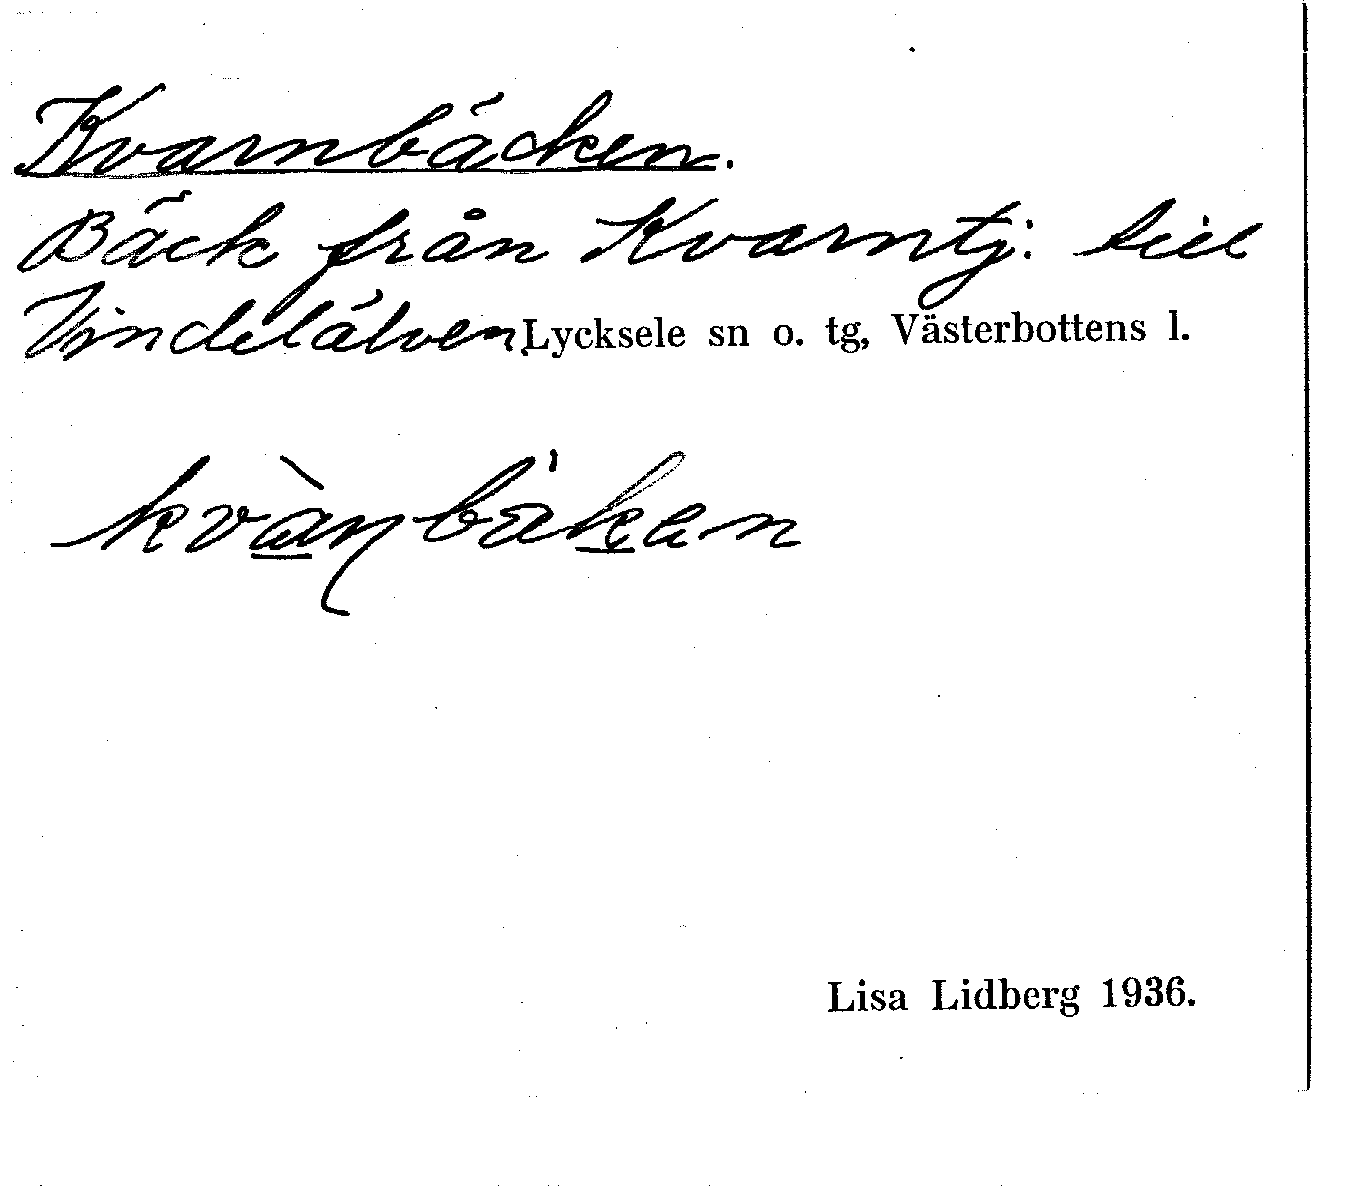 Kvarnbäcken.
Bäck från Kvarntj. till
Vindelälven Lycksele sn o. tg, Västerbottens l.
kvànbäken
Lisa Lidberg 1936.